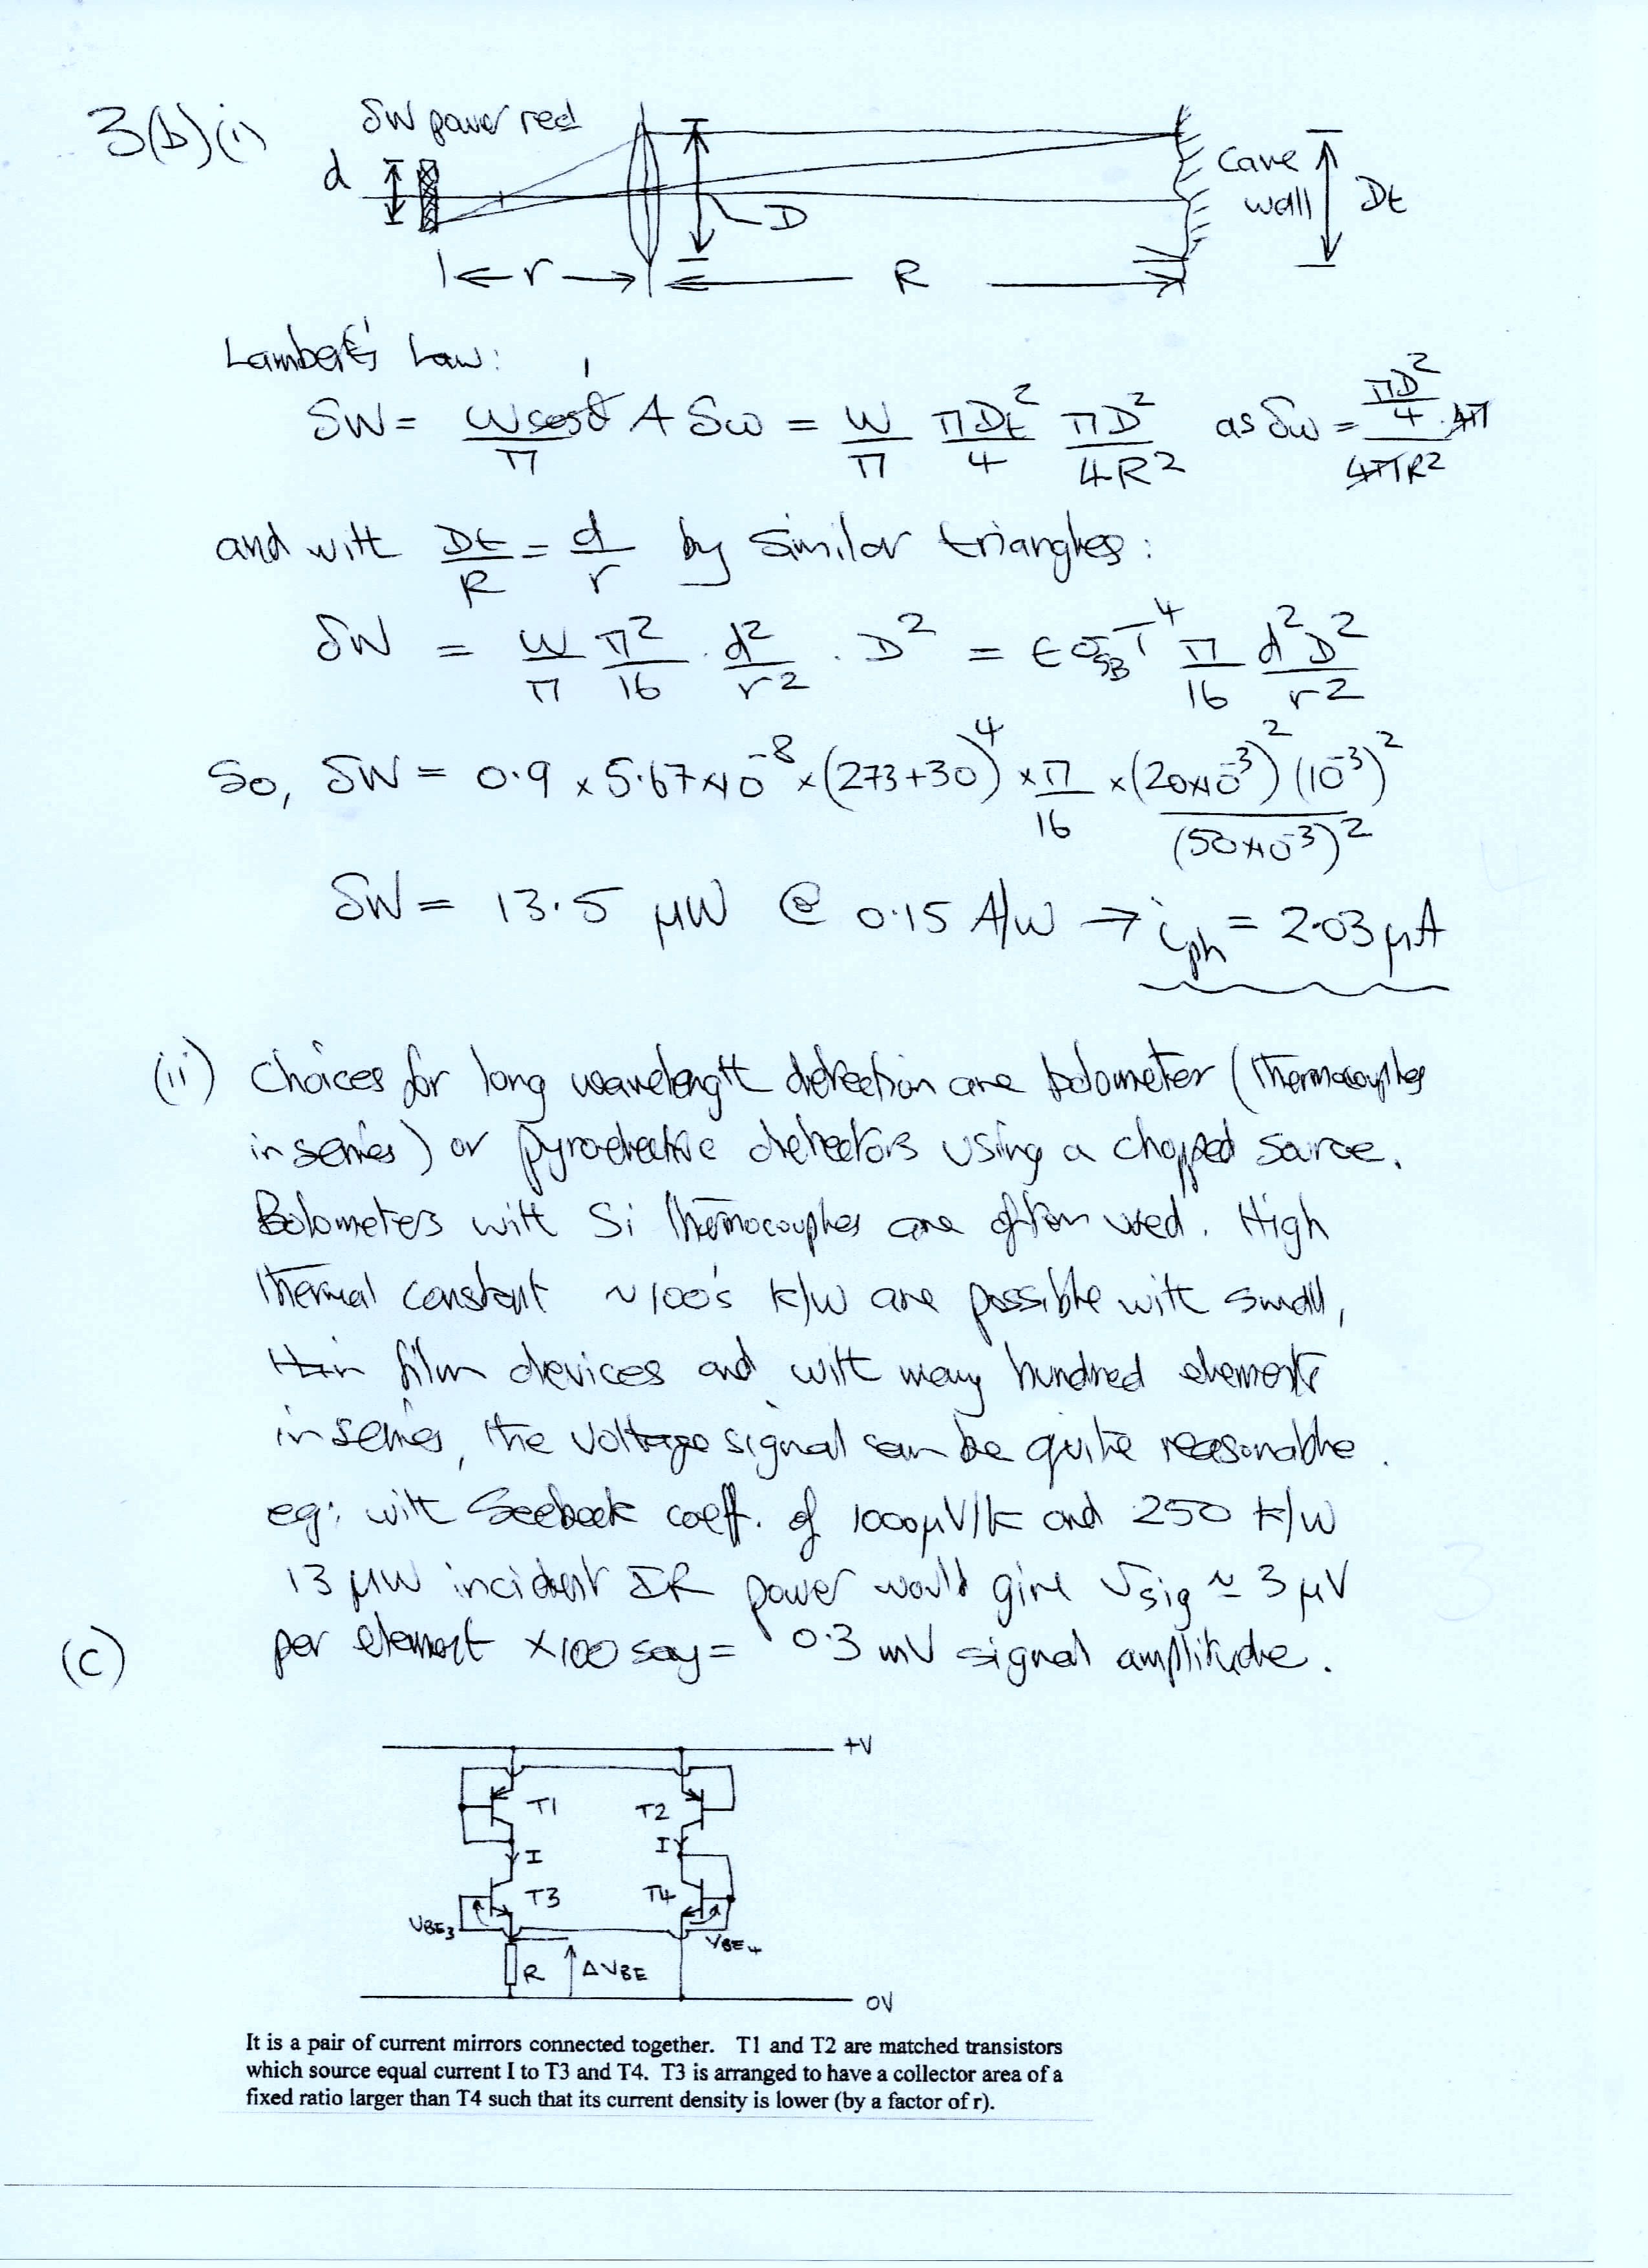 3(b)(i)
δW power recd
d
D
r
R
Cave
wall
Dt
Lambert's Law:
δW = W cosθ / π A δω = W/π πDt²/4 πD²/4R² as δω = πD²/4 · 4π / 4πR²
1
and with Dt/R = d/r by similar triangles:
δW = W/π π²/16 · d²/r² · D² = ϵ σSB T⁴ π/16 d²D²/r²
So, δW = 0.9 × 5.67×10⁻⁸ × (273+30)⁴ × π/16 × (20×10⁻³)² (10⁻³)² / (50×10⁻³)²
δW = 13.5 μW @ 0.15 A/W → iph = 2.03 μA
(ii) Choices for long wavelength detection are bolometer (thermocouples
in series) or pyroelectric detectors using a chopped source.
Bolometers with Si thermocouples are often used. High
thermal constant ~100's K/W are possible with small,
thin film devices and with many hundred elements
in series, the voltage signal can be quite reasonable.
eg: with Seebeck coeff. of 1000μV/K and 250 K/W
13 μW incident IR power would give Vsig ≃ 3 μV
per element ×100 say = 0.3 mV signal amplitude.
(c)
+V
T1 T2
I I
T3 T4
VBE3 VBE4
R ΔVBE
0V
It is a pair of current mirrors connected together. T1 and T2 are matched transistors
which source equal current I to T3 and T4. T3 is arranged to have a collector area of a
fixed ratio larger than T4 such that its current density is lower (by a factor of r).